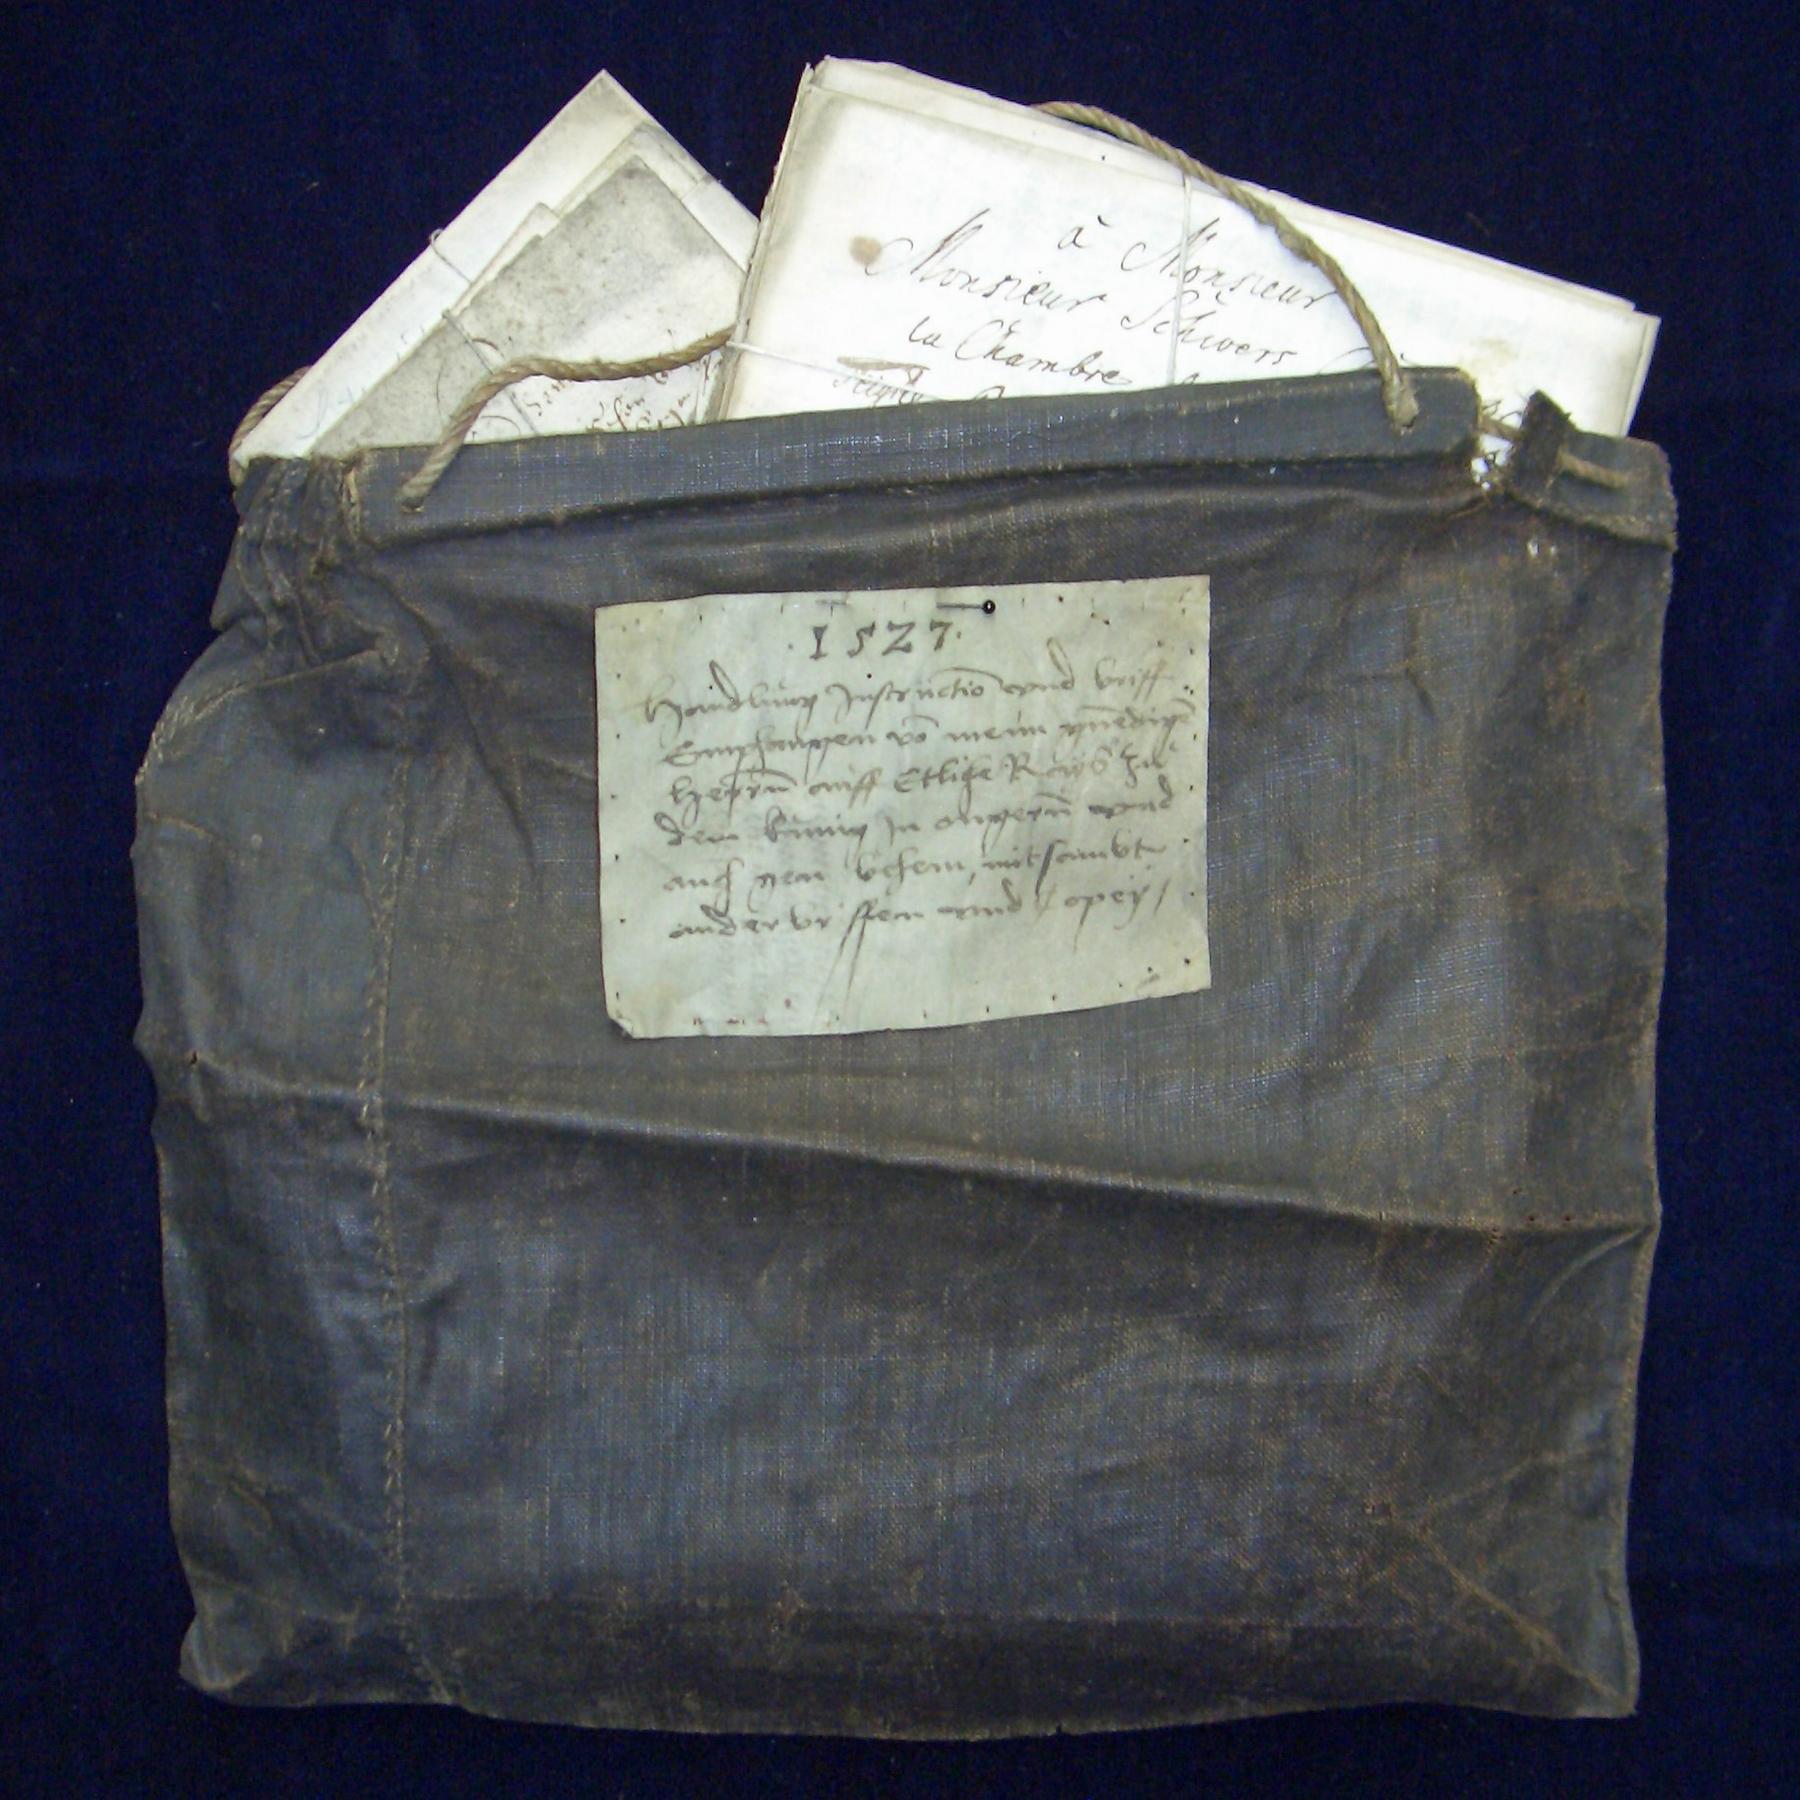 à Monsieur
Monsieur Schwers
la Chambre
· 1527 ·
Handlung Instructiō vnd briff
Empfangen vō meim gnedigē
herrn̄ auff Etliche Rays zu
dem kunig In ungern̄ vnd
auch gen behem, mitsambt
ander briffen vnd Copey